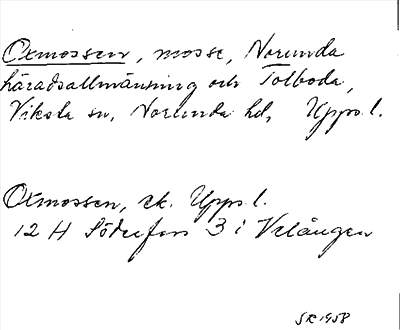 Oxmossen, mosse, Norunda
häradsallmänning och Tolboda,
Viksta sn, Norunda hd, Upps. l.
Oxmossen, ek. Upps. l.
12 H Söderfors 3 i Velången
SR 1958